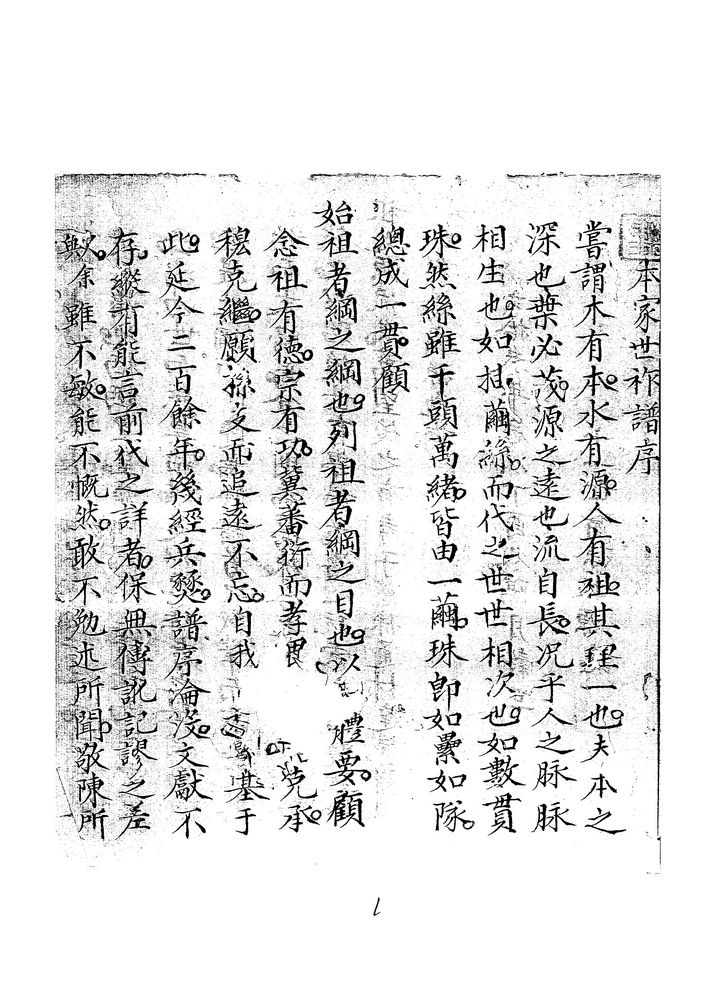 本家世祚譜序
嘗謂木有本水有源人有祖其理一也夫本之
深也葉必茂源之遠也流自長况乎人之脉脉
相生也如抽繭絲而代之世世相次也如數貫
珠然絲雖千頭萬緒皆由一繭珠即如纍如隊
總成一貫顧
始祖者綱之綱也列祖者綱之目也以 體要顧
念祖有德宗有功冀蕃衍而孝思 克承
穆克繼願孫支而追遠不忘自我 基于
此延今二百餘年幾經兵燹譜序淪没文獻不
存縱有能言前代之詳者保無傳訛記謬之差
歟余雖不敏能不慨然敢不勉述所聞敬陳所
1